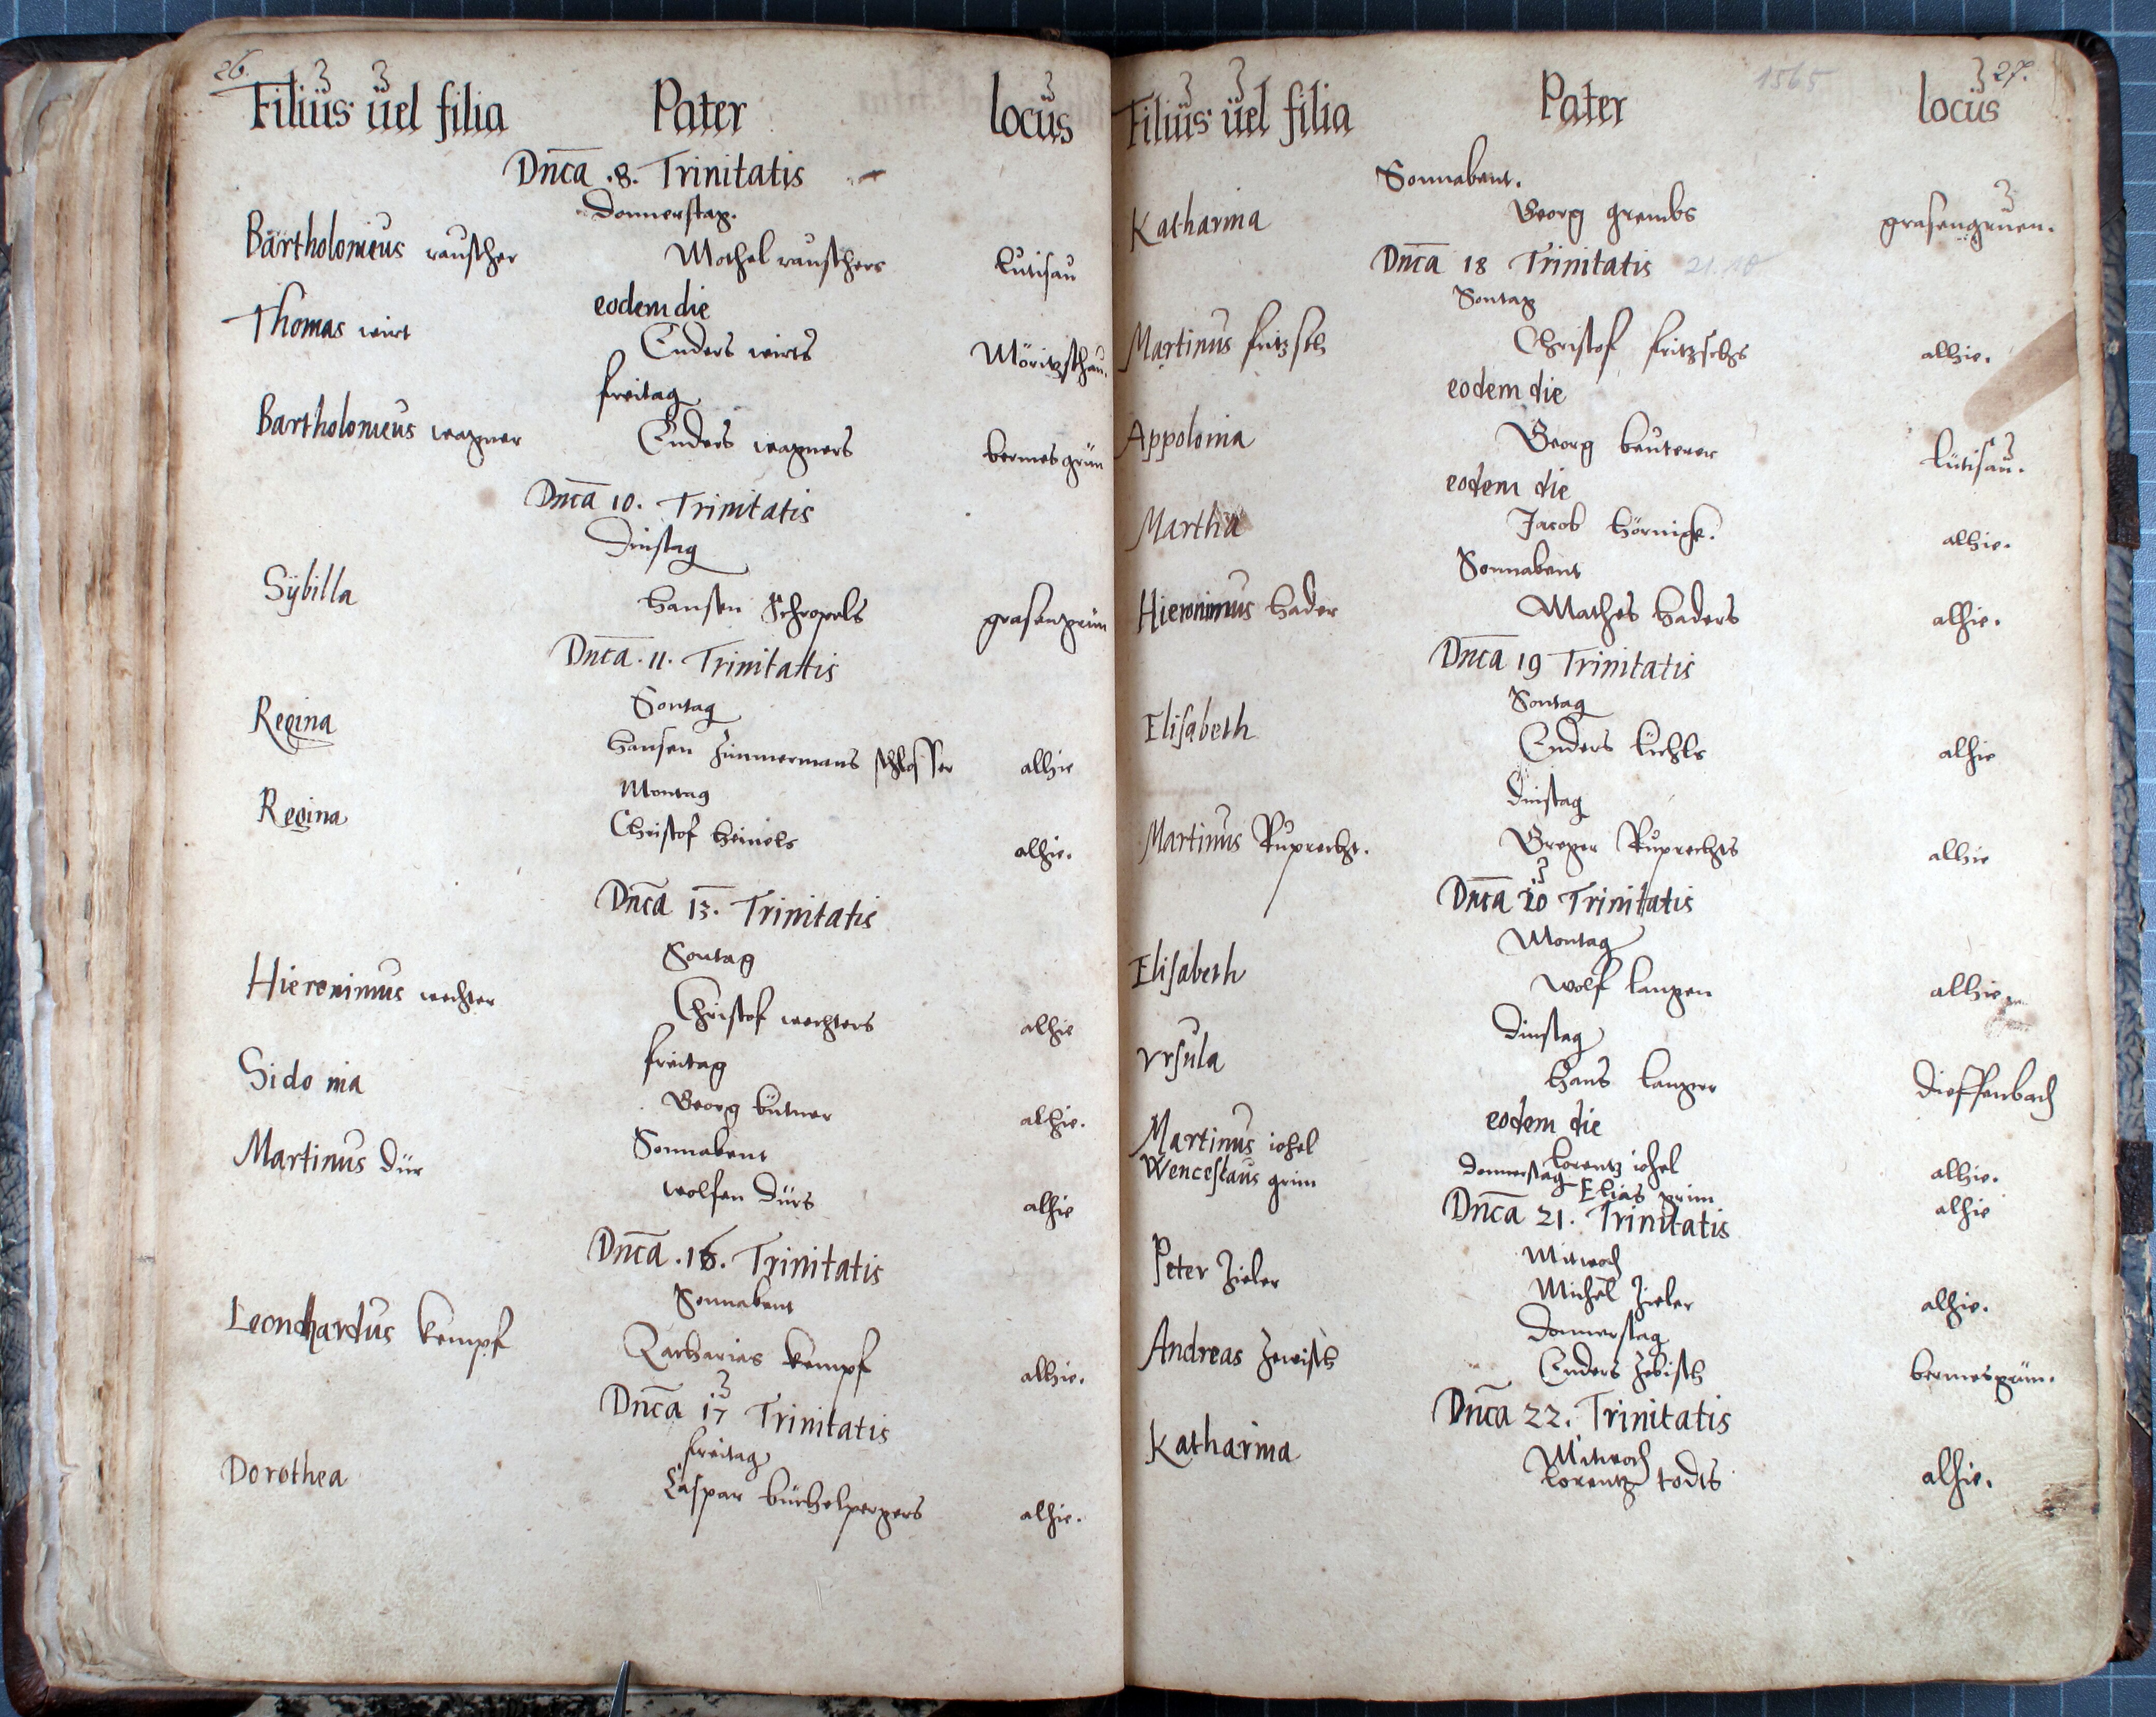 26.
Filius uel filia Pater locus
Dnca .8. Trinitatis
Donnerstag.
Bartholomeus rauscher Mathel rauschers Lutisau
eodem die
Thomas wirt Enders wirts Möritzschau.
freitag
Bartholomeus wagner Enders wagners bermesgrün
Dnca 10. Trinitatis
Dinstag
Sÿbilla Hansen Schropels grasengrün
Dnca .11. Trinitattis
Sontag
Regina Hansen Zimmermans schlosser alhie
Montag
Regina Christof Heinels alhie.
Dnca 13. Trinitatis
Sontag
Hieronimus wechter Christof wechters alhie
freitag
Sidonia Georg kütner alhie.
Sonnabent
Martinus Dür wolfen Dürs alhie
Dnca .16. Trinitatis
Sonnabent
Leonhardus kempf Zacharias kempf alhie.
Dnca 17 Trinitatis
freitag
Dorothea Caspar büchelpergers alhie.
27.
1565
Filius uel filia Pater locus
Sonnabent.
Katharina Georg grembs grasengruen.
Dnca 18 Trinitatis 21.10
Sontag
Martinus fritzsch Christof fritzschs alhie.
eodem die
Appolonia Georg beuterer Lutisau.
eodem die
Martha Jacob Hörnigk. alhie.
Sonnabent
Hieronimus Hader Mathes Haders alhie.
Dnca 19 Trinitatis
Sontag
Elisabeth Enders küchls alhie
Dinstag
Martinus Ruprecht. Greger Ruprechts alhie
Dnca 20 Trinitatis
Montag
Elisabeth Wolf langen alhie
Dinstag
Vrsula Hans langer Dieffenbach
eodem die
Martinus iohel Lorentz iohel alhie.
Donnerstag
Wenceslaus grim Elias grim alhie
Dnca 21. Trinitatis
Mitwoch
Peter Zieler Michel Zieler alhie.
Donnerstag
Andreas Zewisch Enders Zebisch bermesgrün.
Dnca 22. Trinitatis
Mitwoch
Katharina Lorentz todts alhie.